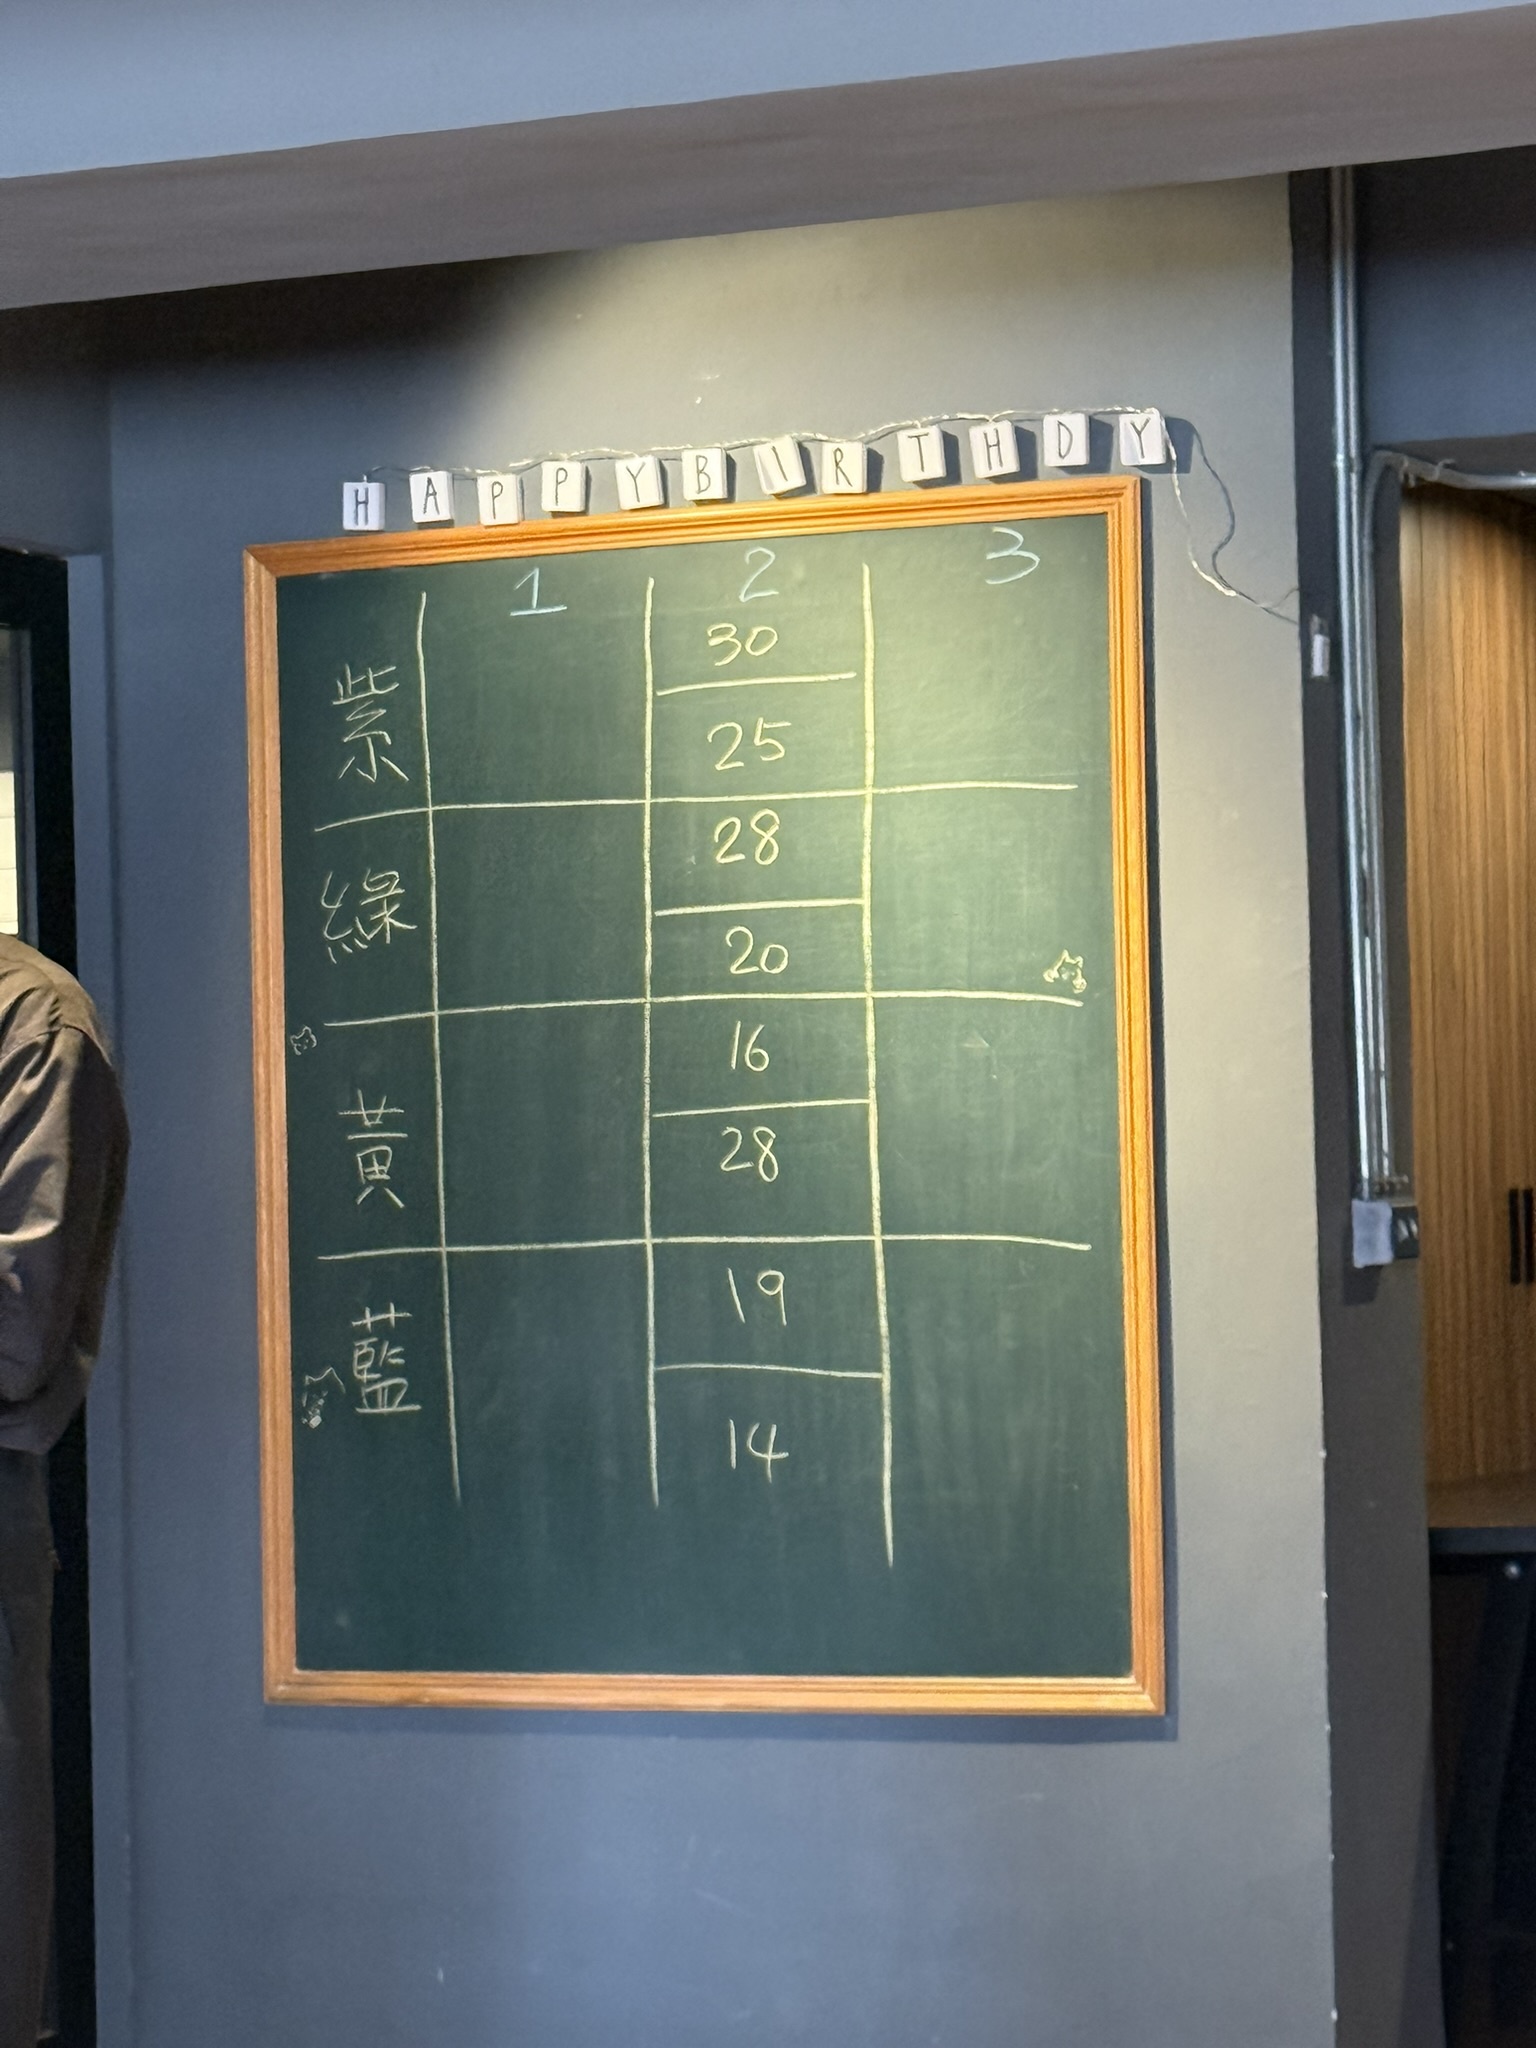 HAPPYBIRTHDY
1 2 3
紫 30
25
綠 28
20
黃 16
28
藍 19
14